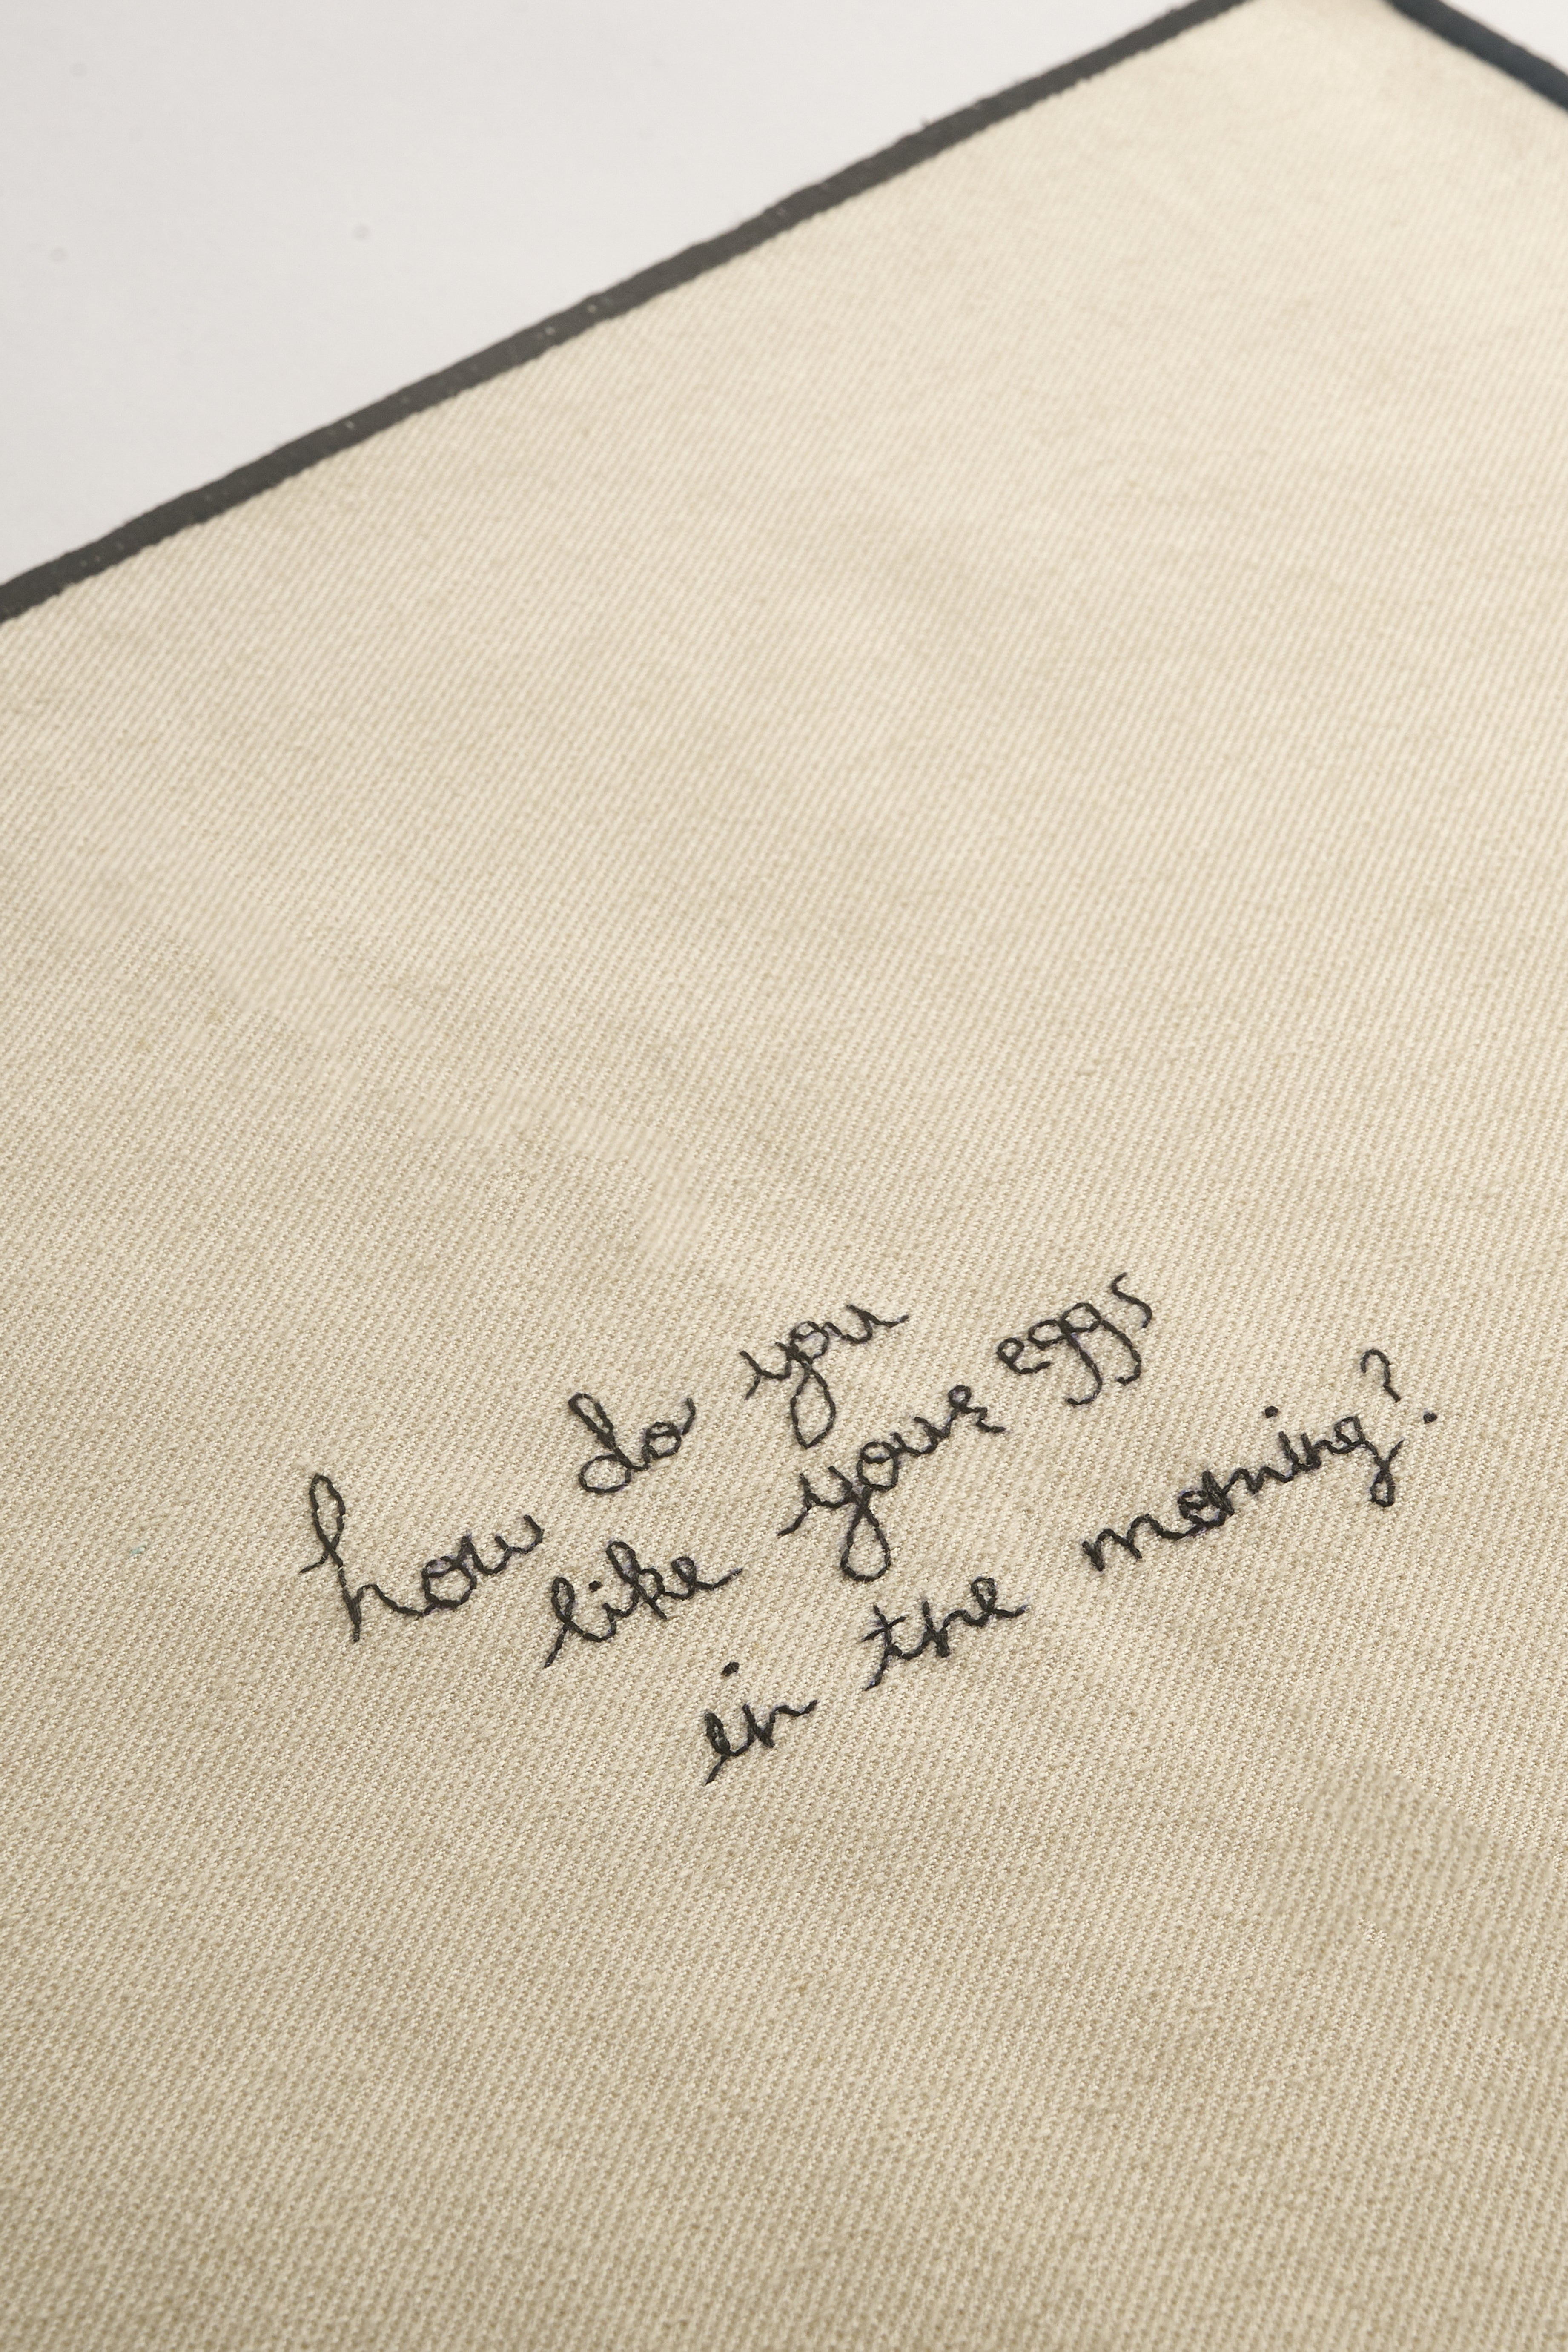 how do you
like your eggs
in the morning?